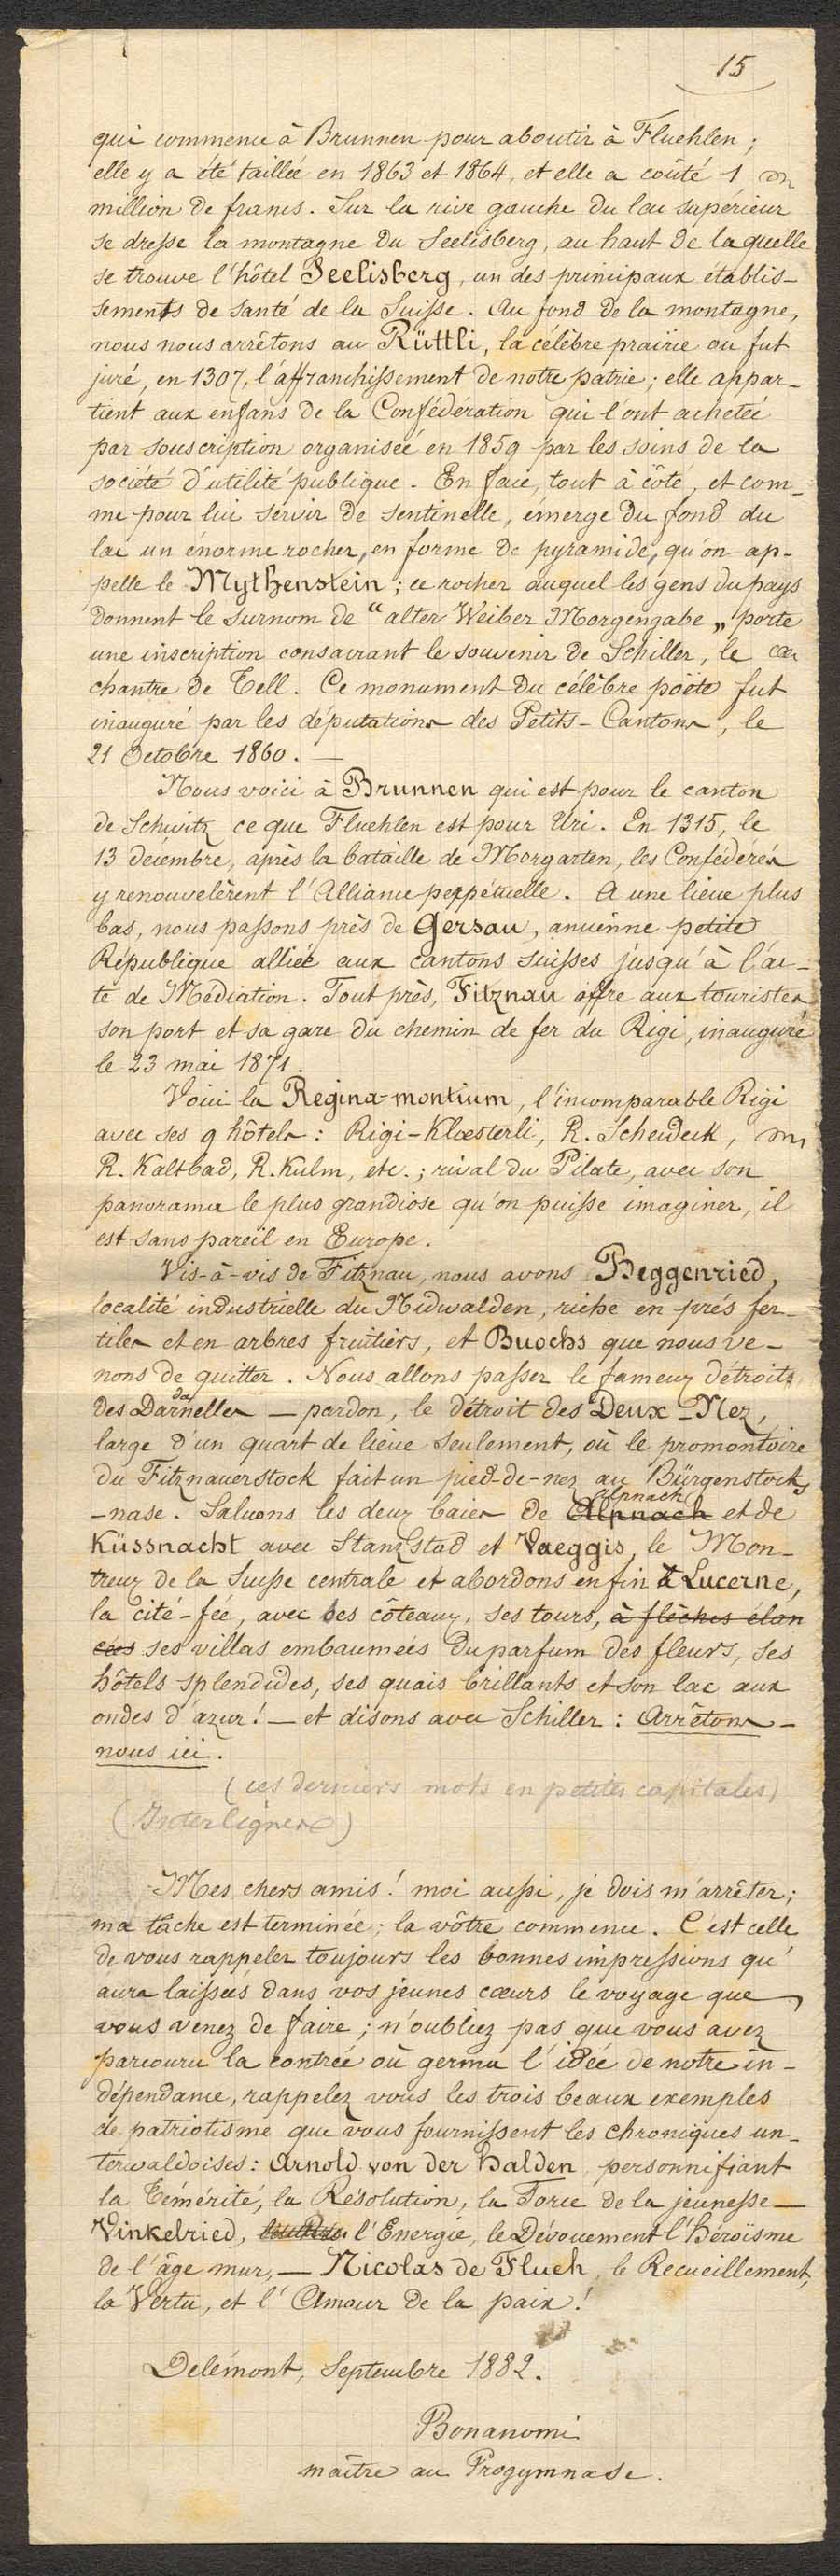 15
qui commence à Brunnen pour aboutir à Fluehlen ;
elle y a été taillée en 1863 et 1864, et elle a coûté 1
million de francs. Sur la rive gauche du lac supérieur
se dresse la montagne du Seelisberg, au haut de laquelle
se trouve l'hôtel Seelisberg, un des principaux établis-
sements de santé de la Suisse. Au fond de la montagne,
nous nous arrêtons au Rüttli, la célèbre prairie ou fut
juré, en 1307, l'affranchissement de notre patrie ; elle appar-
tient aux enfans de la Confédération qui l'ont achetée
par souscription organisée en 1859 par les soins de la
société d'utilité publique. En face, tout à côté, et com-
me pour lui servir de sentinelle, émerge du fond du
lac un énorme rocher, en forme de pyramide, qu'on ap-
pelle le Mythenstein ; ce rocher auquel les gens du pays
donnent le surnom de "alter Weiber Morgengabe„ porte
une inscription consacrant le souvenir de Schiller, le
chantre de Tell. Ce monument du célèbre poëte fut
inauguré par les députations des Petits-Cantons, le
21 Octobre 1860. —
Nous voici à Brunnen qui est pour le canton
de Schwitz ce que Fluehlen est pour Uri. En 1315, le
13 décembre, après la bataille de Morgarten, les Confédérés
y renouvelèrent l'Alliance perpétuelle. A une lieue plus
bas, nous passons près de Gersau, ancienne petite
République alliée aux cantons suisses jusqu'à l'ac-
te de Médiation. Tout près, Fitznau offre aux touristes
son port et sa gare du chemin de fer du Rigi, inauguré
le 23 mai 1871.
Voici la Regina-montium, l'incomparable Rigi
avec ses 9 hôtels : Rigi-Klœsterli, R. Scheideck,
R. Kaltbad, R. Kulm, etc. ; rival du Pilate, avec son
panorama le plus grandiose qu'on puisse imaginer, il
est sans pareil en Europe.
Vis-à-vis de Fitznau, nous avons Beggenried,
localité industrielle du Nidwalden, riche en prés fer-
tiles et en arbres fruitiers, et Buochs que nous ve-
nons de quitter. Nous allons passer le fameux détroits
da
des Darnelles — pardon, le détroit des Deux-Nez,
large d'un quart de lieue seulement, où le promontoire
du Fitznauerstock fait un pied-de-nez au Bürgenstocks
alpnach
-nase. Saluons les deux baies de Alpnach et de
Küssnacht avec Stanzstad et Vaeggis, le Mon-
treux de la Suisse centrale et abordons enfin à Lucerne,
la cité-fée, avec ses côteaux, ses tours, à flèches élan
cées ses villas embaumées du parfum des fleurs, ses
hôtels splendides, ses quais brillants et son lac aux
ondes d'azur ! — et disons avec Schiller : Arrêtons-
nous ici.
(ces derniers mots en petites capitales)
(Interligner)
Mes chers amis ! moi aussi, je dois m'arrêter ;
ma tâche est terminée ; la vôtre commence. C'est celle
de vous rappeler toujours les bonnes impressions qu'
aura laissées dans vos jeunes cœurs le voyage que
vous venez de faire ; n'oubliez pas que vous avez
parcouru la contrée où germa l'idée de notre in-
dépendance, rappelez vous les trois beaux exemples
de patriotisme que vous fournissent les chroniques un-
terwaldoises : Arnold von der Halden personnifiant
la Témérité, la Résolution, la Force de la jeunesse —
Vinkelried, l'Energie, le Dévouement l'héroïsme
de l'âge mur, — Nicolas de Flueh, le Recueillement,
la Vertu, et l'Amour de la paix !
Delémont, Septembre 1882.
Bonanomi
maître au Progymnase.